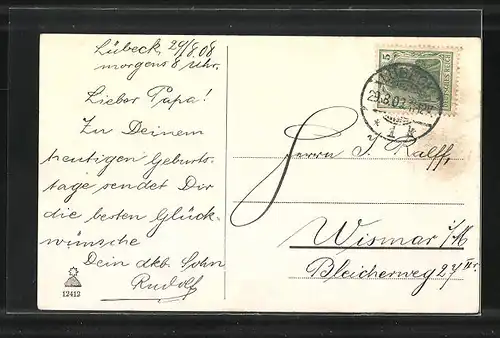 Lübeck, 29/8.08
morgens 8 Uhr.
Lieber Papa!
Zu Deinem
heutigen Geburts-
tage sendet Dir
die besten Glück-
wünsche
Dein dkb. Sohn
Rudolf
12412
5
DEUTSCHES REICH
LÜBECK
29.8.0
* 1 k
Herrn J. Ralff,
Wismar i/M
Bleicherweg 27 IIr.